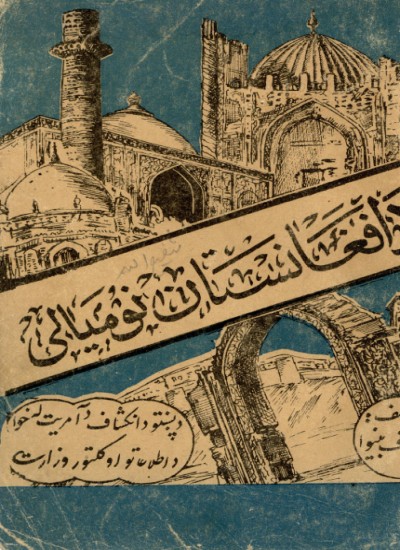 د افغانستان نومیالی
د پښتو د انکشاف د آمریت لخوا
د اطلاعاتو او کلتور وزارت